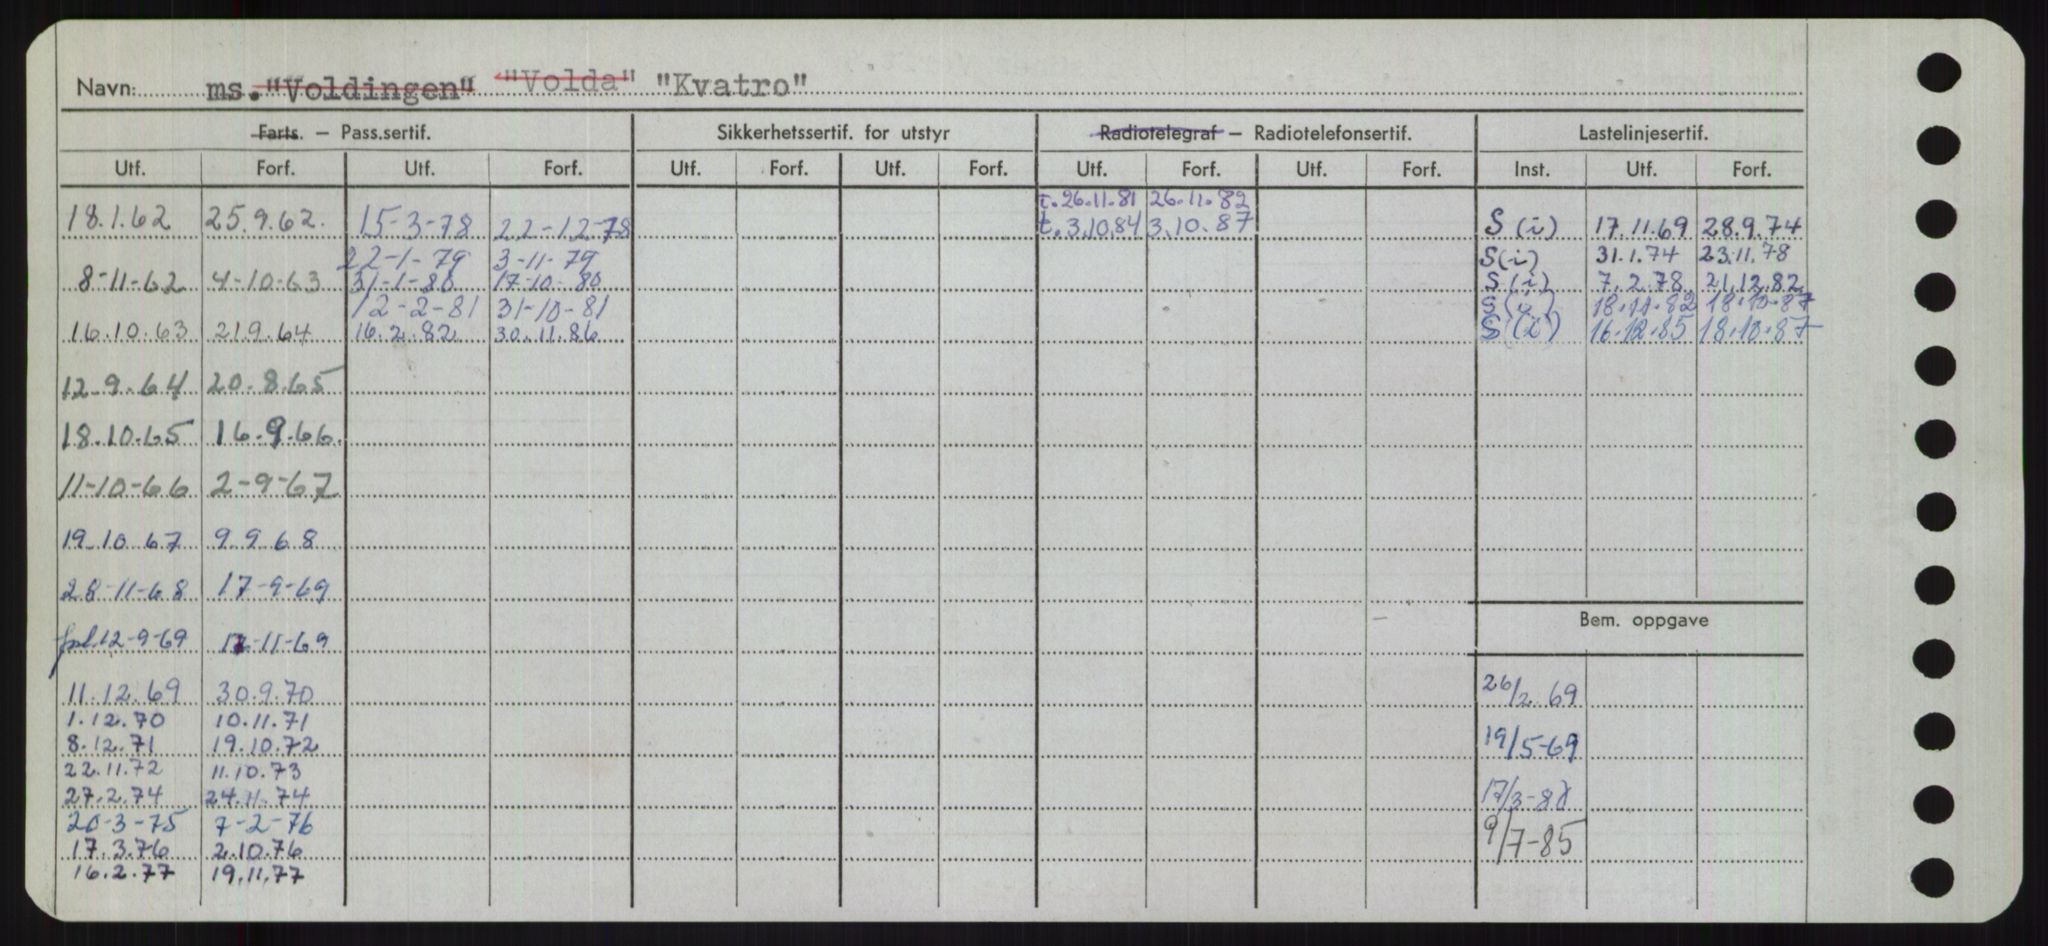 Navn: ms. "Voldingen" "Volda" "Kvatro"
Farts. – Pass.sertif. Sikkerhetssertif. for utstyr Radiotelegraf – Radiotelefonsertif. Lastelinjesertif.
Utf. Forf. Utf. Forf. Utf. Forf. Utf. Forf. Utf. Forf. Utf. Forf. Inst. Utf. Forf.
t. 26.11.81 26.11.82
18.1.62 25.9.62. 15-3-78 22-12-78 t. 3.10.84 3.10.87 S (i) 17.11.69 28.9.74
22-1-79 3-11-79 S (i) 31.1.74 23.11.78
8-11-62 4-10-63 31-1-80 17-10-80 S (i) 7.2.78 21.12.82
12-2-81 31-10-81 S (i) 18.11.82 18.10.87
16.10.63 21.9.64 16.2.82 30.11.86 S (i) 16.12.85 18.10.87
12.9.64 20.8.65
18.10.65 16.9.66.
11-10-66 2-9-67
19.10 67 9 9 68
28-11-68 17-9-69
Bem. oppgave
12-9-69 11-69
11.12.69 30.9.70 26/2 69
1.12.70 10.11.71
8.12.71 19.10.72 19/5-69
22.11.72 11.10.73
27.2.74 24.11.74 17/3-
20-3-75 7-2-76
17.3.76 2.10.76 9/7-85
16.2.77 19.11.77